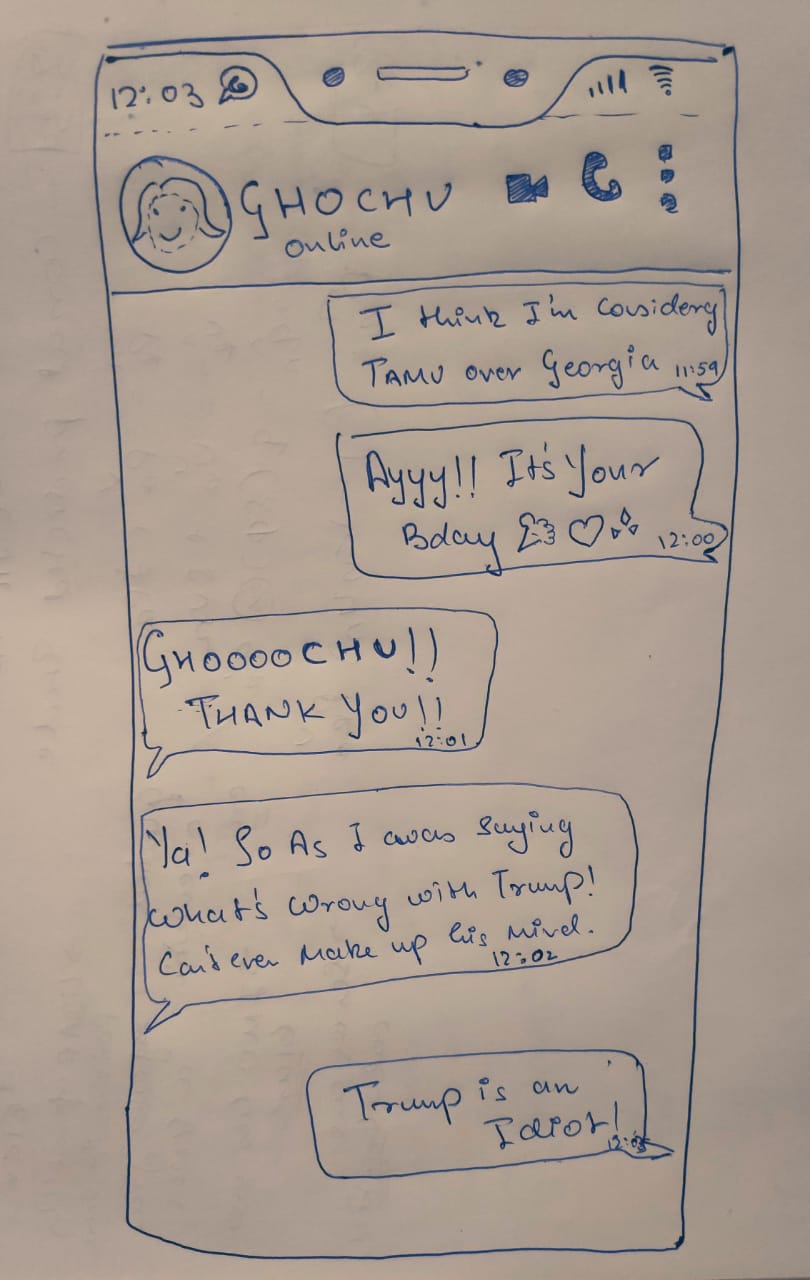 12:03
GHOCHU
online
I think I'm Considerng
TAMU over Georgia 11:59
Ayyy!! It's Your
Bday 12:00
GHOOOOCHU!!
THANK YOU!!
12:01
Ya! So As I was Saying
What's wrong with Trump!
Can't ever Make up his Mind.
12:02
Trump is an
Idiot!